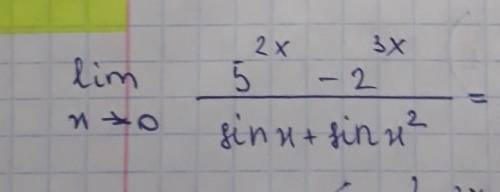 lim x→0 (5^{2x} - 2^{3x}) / (sin x + sin x^2) =